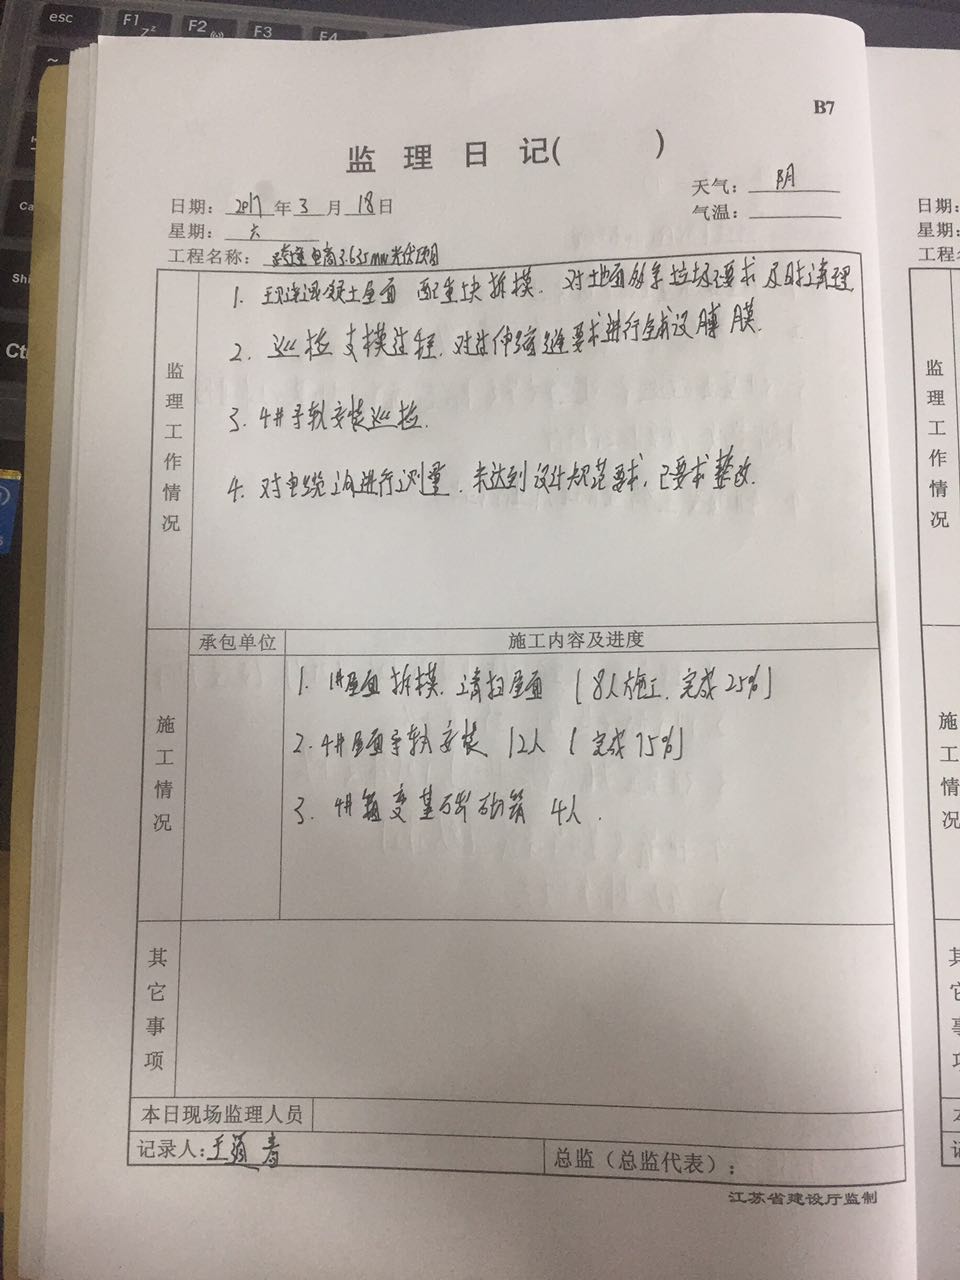 esc F1 F2 F3 F4
B7
监 理 日 记( )
日期：2017年3月18日 天气：阴
星期：六 气温：
工程名称：跨境电商3.63MW光伏项目
监理工作情况
1. 现浇混凝土屋面 配重块拆模. 对地面的余垃圾要求及时清理
2. 巡检 支模过程. 对过伸缩缝要求进行 膜.
3. 4#导轨安装巡检.
4. 对电缆 进行测量. 未达到设计规范要求, 已要求整改.
施工情况
承包单位 施工内容及进度
1. 1#屋面 拆模. 清扫屋面 [8人施工. 完成25%]
2. 4#屋面导轨安装 12人 [完成75%]
3. 4#箱变基础砌筑 4人.
其它事项
本日现场监理人员
记录人：王 春 总监（总监代表）：
江苏省建设厅监制
日期:
星期:
工程名
监理工作情况
施工情况